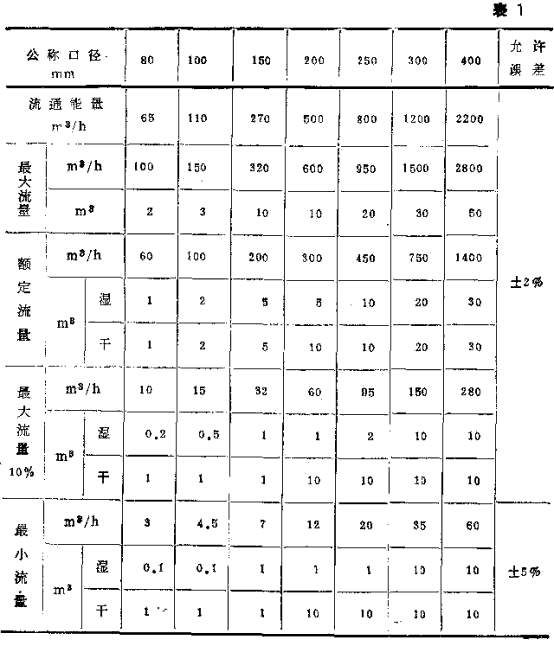 表 1
公称口径 mm 80 100 150 200 250 300 400 允许误差
流通能量 m³/h 65 110 270 500 800 1200 2200 ±2%
最大流量 m³/h 100 150 320 600 950 1500 2800
m³ 2 3 10 10 20 30 50
额定流量 m³/h 60 100 200 300 450 750 1400
m³ 湿 1 2 5 5 10 20 30
干 1 2 5 10 10 20 30
最大流量10% m³/h 10 15 32 60 95 150 280
m³ 湿 0.2 0.5 1 1 2 10 10
干 1 1 1 10 10 10 10
最小流量 m³/h 3 4.5 7 12 20 35 60 ±5%
m³ 湿 0.1 0.1 1 1 1 10 10
干 1 1 1 10 10 10 10